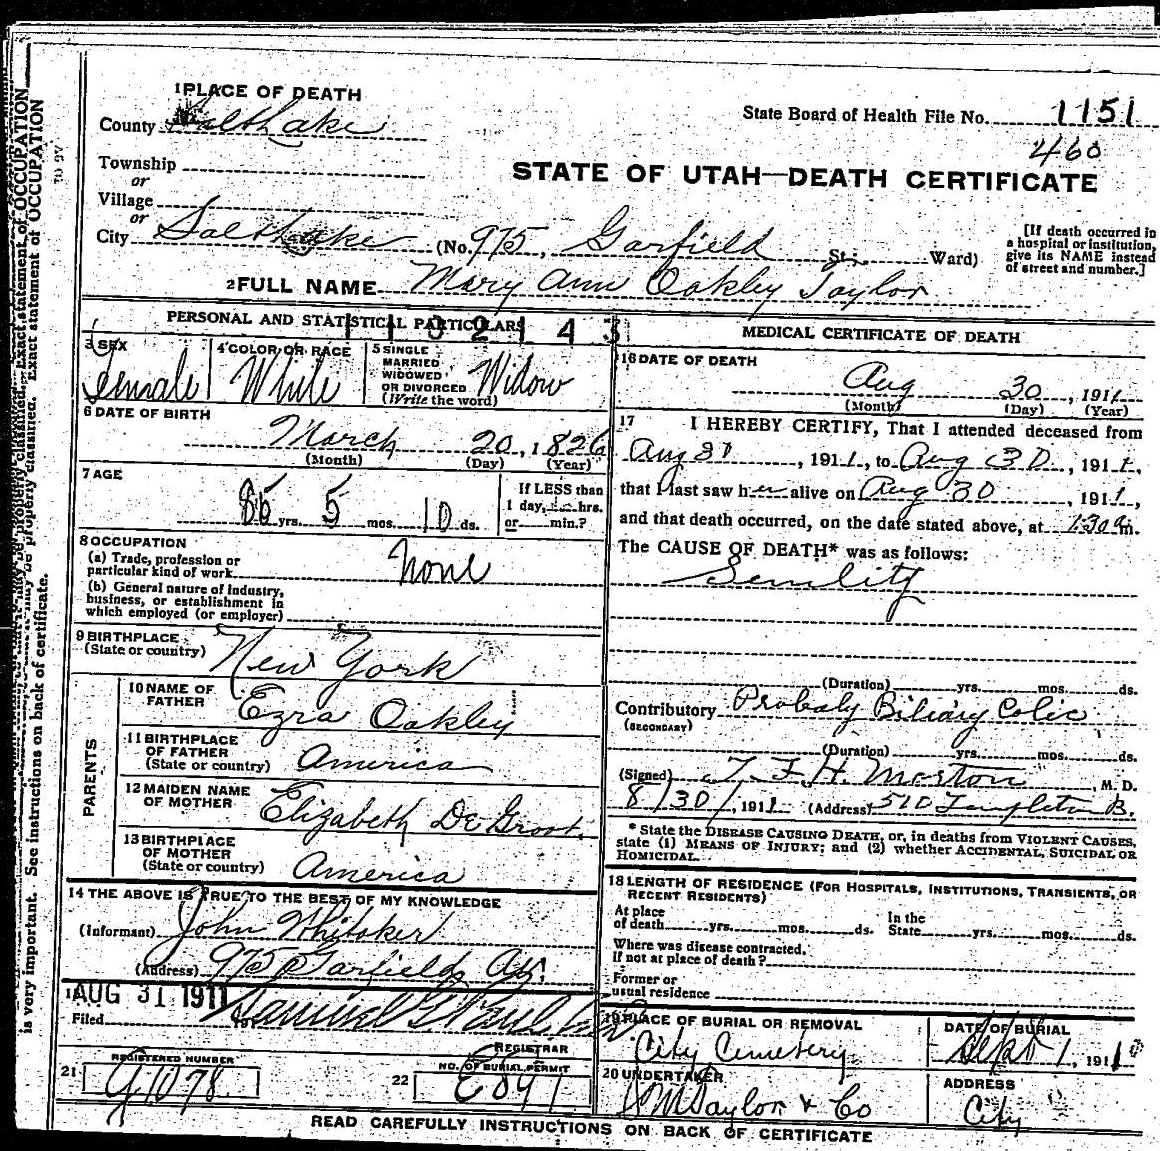 1 PLACE OF DEATH
County Salt Lake
State Board of Health File No. 1151
460
Township
or
Village
or
STATE OF UTAH—DEATH CERTIFICATE
City Salt Lake (No. 975, Garfield St; Ward)
[If death occurred in
a hospital or institution,
give its NAME instead
of street and number.]
2 FULL NAME Mary Ann Oakley Taylor
PERSONAL AND STATISTICAL PARTICULARS
3 SEX
Female
4 COLOR OR RACE
White
5 SINGLE
MARRIED
WIDOWED
OR DIVORCED
(Write the word)
Widow
6 DATE OF BIRTH
March 20, 1826
(Month) (Day) (Year)
7 AGE
85 yrs. 5 mos. 10 ds.
If LESS than
1 day, hrs.
or min.?
8 OCCUPATION
(a) Trade, profession or
particular kind of work None
(b) General nature of Industry,
business, or establishment in
which employed (or employer)
9 BIRTHPLACE
(State or country) New York
PARENTS
10 NAME OF
FATHER Ezra Oakley
11 BIRTHPLACE
OF FATHER
(State or country) America
12 MAIDEN NAME
OF MOTHER Elizabeth De Groot.
13 BIRTHPLACE
OF MOTHER
(State or country) America
14 THE ABOVE IS TRUE TO THE BEST OF MY KNOWLEDGE
(Informant) John Whitaker
(Address) 975 Garfield
AUG 31 1911
Filed
REGISTRAR
21 REGISTERED NUMBER
G1078
22 NO. OF BURIAL PERMIT
MEDICAL CERTIFICATE OF DEATH
16 DATE OF DEATH
Aug 30, 1911
(Month) (Day) (Year)
17 I HEREBY CERTIFY, That I attended deceased from
Aug 30, 1911, to Aug 30, 1911,
that I last saw her alive on Aug 30, 1911,
and that death occurred, on the date stated above, at 1:30 a m.
The CAUSE OF DEATH* was as follows:
Senility
(Duration) yrs. mos. ds.
Contributory Probaly Biliary Colic
(SECONDARY)
(Duration) yrs. mos. ds.
(Signed) T. F. H. Morton, M. D.
8/30/, 1911 (Address) 510 Templeton B.
* State the DISEASE CAUSING DEATH, or, in deaths from VIOLENT CAUSES,
state (1) MEANS OF INJURY; and (2) whether ACCIDENTAL, SUICIDAL OR
HOMICIDAL.
18 LENGTH OF RESIDENCE (FOR HOSPITALS, INSTITUTIONS, TRANSIENTS, OR
RECENT RESIDENTS)
At place
of death yrs. mos. ds.
In the
State yrs. mos. ds.
Where was disease contracted.
if not at place of death?
Former or
usual residence
19 PLACE OF BURIAL OR REMOVAL
City Cemetery
DATE OF BURIAL
Sept 1, 1911
20 UNDERTAKER
S M Taylor & Co
ADDRESS
City
READ CAREFULLY INSTRUCTIONS ON BACK OF CERTIFICATE
is very important. See instructions on back of certificate.
Exact statement of OCCUPATION